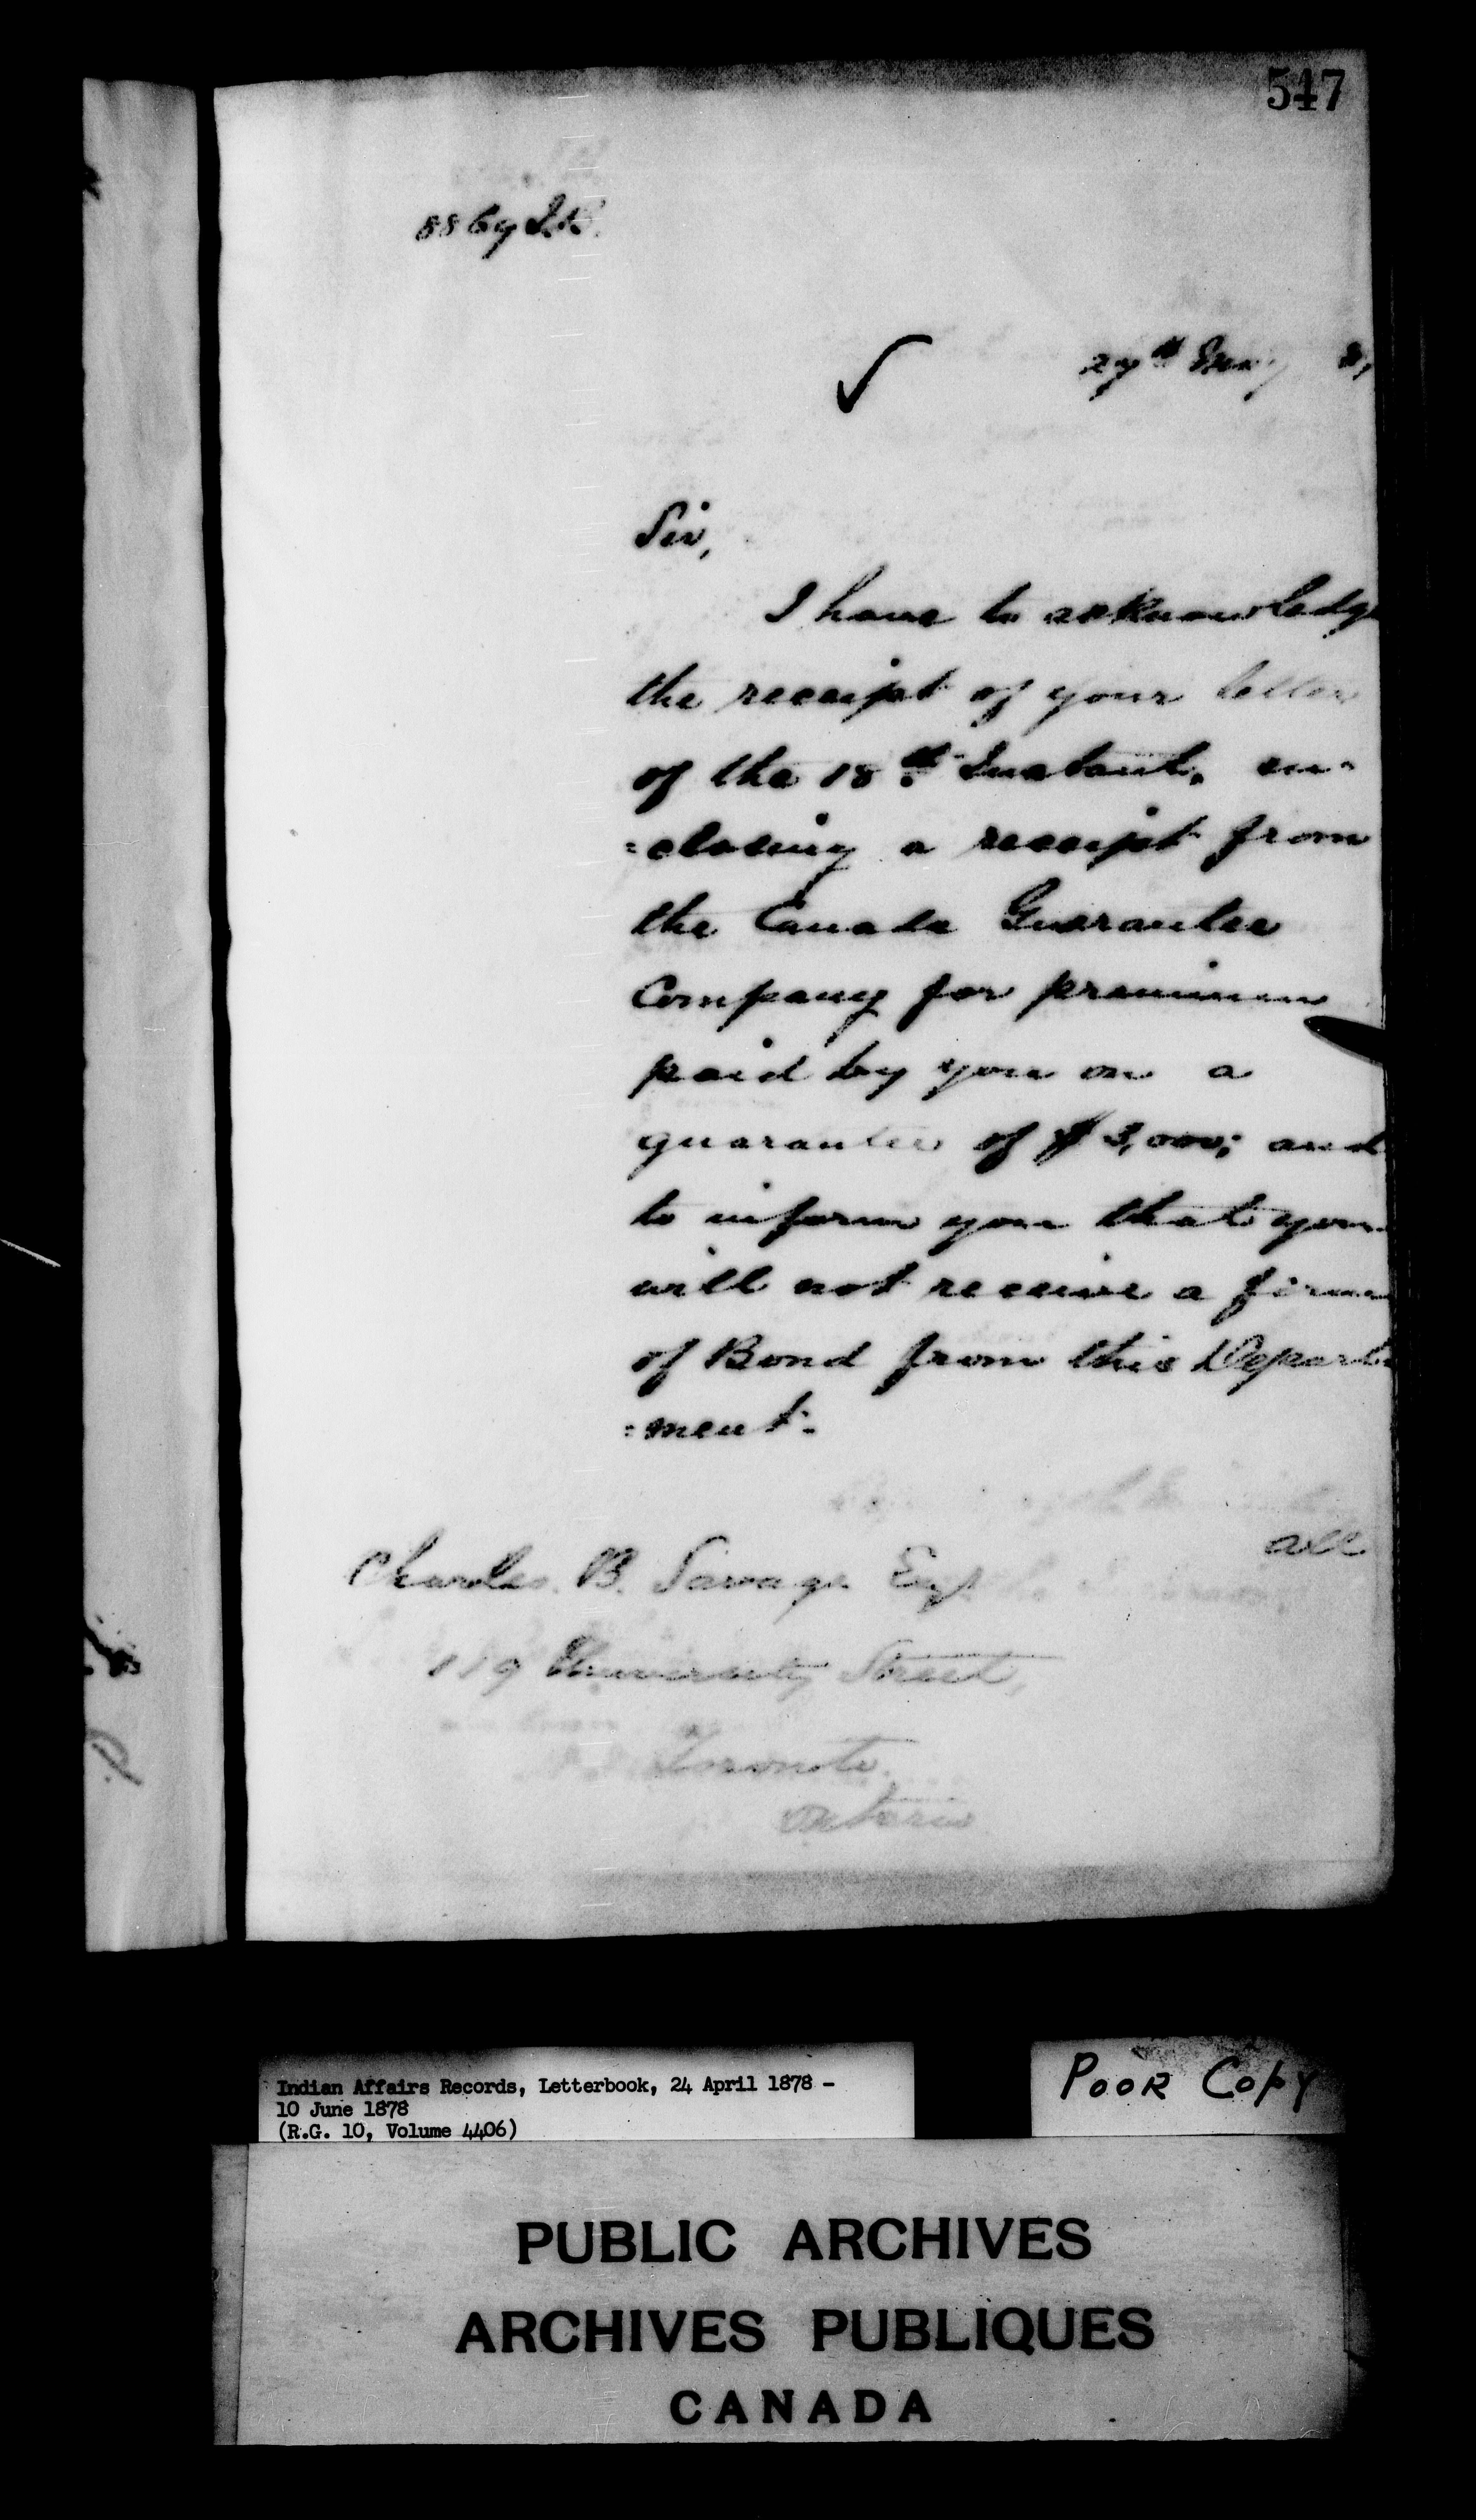 547
8869 I.B.
29th May 8,
Sir,
I have to acknowledge
the receipt of your letter
of the 18th Instant, en-
=closing a receipt from
the Canada Guarantee
Company for premium
paid by you on a
guarantee of $3,000; and
to inform you that you
will not receive a form
of Bond from this Depart-
=ment.
all
Charles. B. Savage Esq
119 University Street,
Toronto.
Ontario
Indian Affairs Records, Letterbook, 24 April 1878 -
10 June 1878
(R.G. 10, Volume 4406)
POOR COPY
PUBLIC ARCHIVES
ARCHIVES PUBLIQUES
CANADA